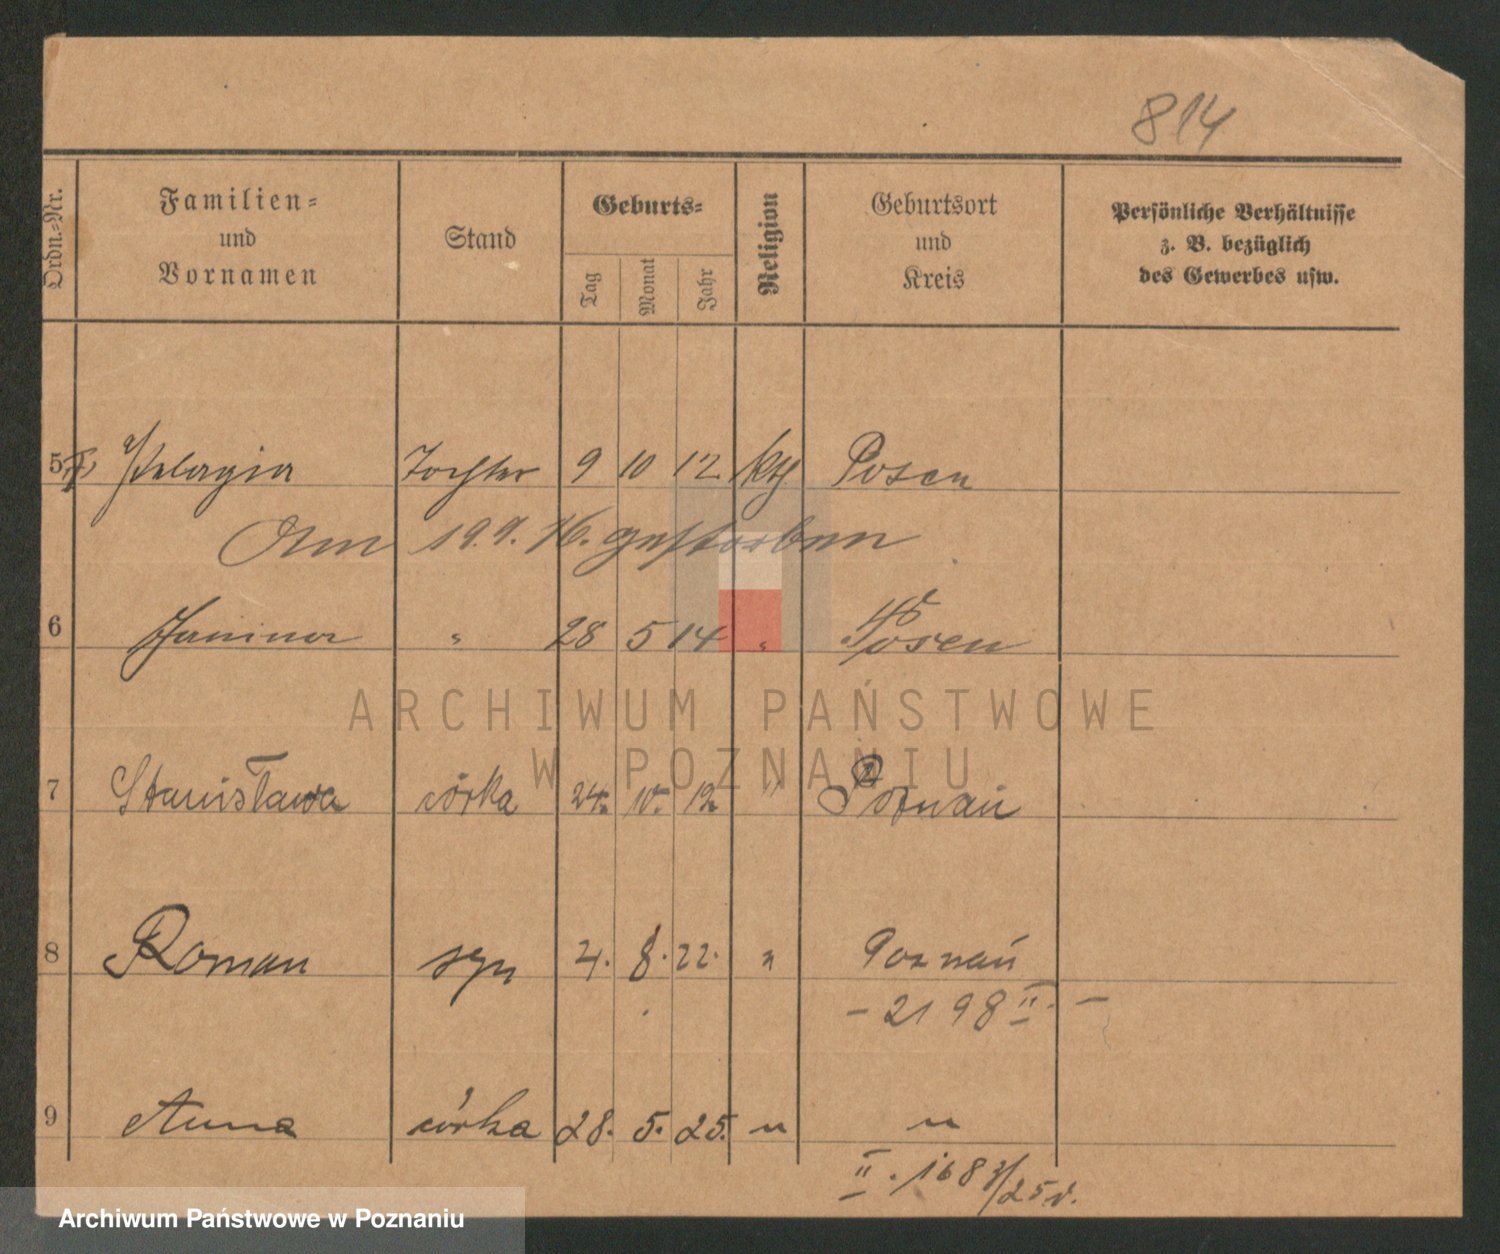 814
Ordn.-Nr.
Familien-
und
Vornamen
Stand
Geburts-
Tag
Monat
Jahr
Religion
Geburtsort
und
Kreis
Persönliche Verhältnisse
z. B. bezüglich
des Gewerbes usw.
5 Pelagia Tochter 9 10 12 kth Posen
Am 19.9.16. gestorben
6 Janina " 28 5 14 " Posen
ARCHIWUM PAŃSTWOWE
W POZNANIU
7 Stanisława córka 24. 10. 19. " Poznań
8 Roman syn 4. 8. 22. " Poznań
- 2198 II. -
9 Anna córka 28. 5. 25. " "
II. 1683/25 r.
Archiwum Państwowe w Poznaniu